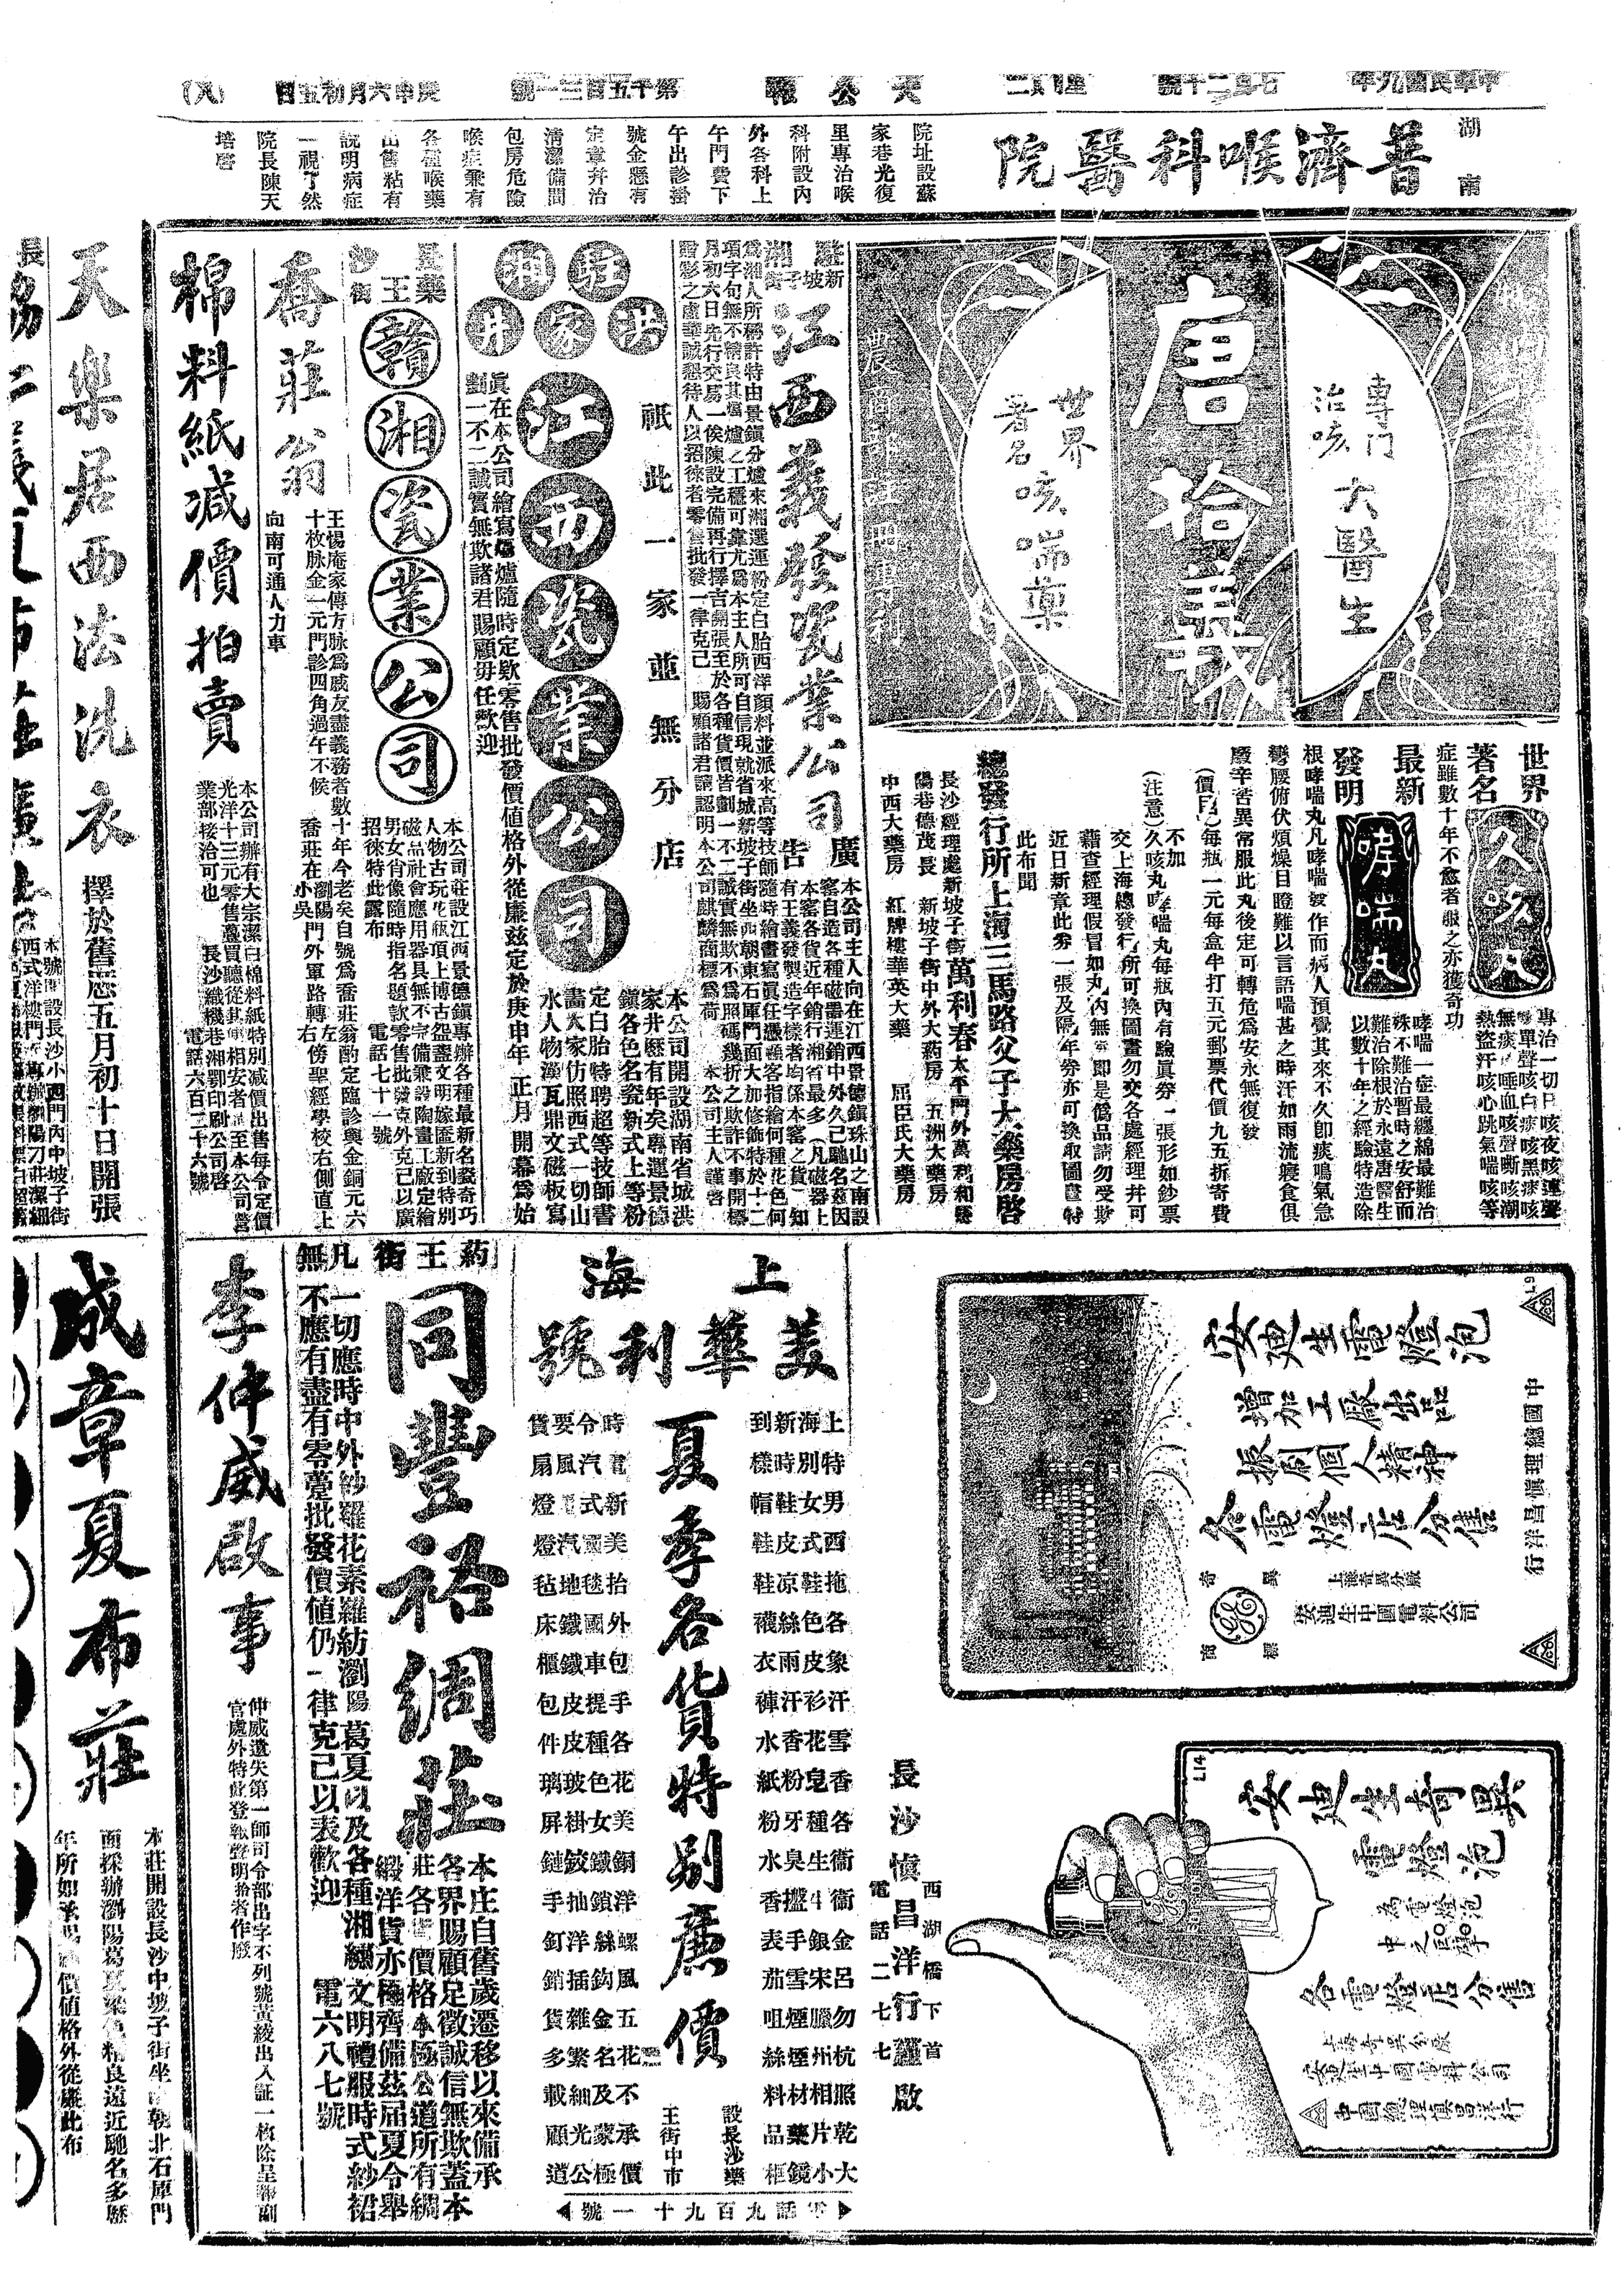 中華民國九年
七月二十號
星期二
大公報
第千五百三一號
庚申六月初五日
(八)
湖南
普濟喉科醫院
院址設蘇
家巷光復
里專治喉
科附設內
外各科上
午門費下
午出診掛
號金懸有
定章并治
清潔備間
包房危險
喉症兼有
各種喉藥
出售粘有
說明病症
一視了然
院長陳天
培啓
專門
治咳
大醫生
唐拾義
世界
著名
咳喘藥
世界
著名
久咳丸
專治一切日咳夜咳連聲
咳單聲咳白痰咳黑痰咳
無痰咳唾血咳聲嘶咳潮
熱盜汗咳心跳氣喘咳等
症雖數十年不愈者服之亦獲奇功
最新
發明
哮喘丸
哮喘一症最纏綿最難治
殊不難治暫時之安舒而
難治除根於永遠唐醫生
以數十年之經驗特造除
根哮喘丸凡哮喘發作而病人預覺其來不久卽痰鳴氣急
彎腰俯伏煩燥目瞪難以言語喘甚之時汗如雨流寢食俱
廢辛苦異常服此丸後定可轉危爲安永無復發
(價目)每瓶一元每盒半打五元郵票代價九五折寄費
不加
(注意)久咳丸哮喘丸每瓶內有驗眞券一張形如鈔票
交上海總發行所可換圖畫勿交各處經理幷可
藉查經理假冒如丸內無券卽是僞品請勿受欺
近日新章此券一張及隔年券亦可換取圖畫特
此布聞
總發行所上海三馬路父子大藥房啓
長沙經理處新坡子街萬利春太平門外萬利和
陽巷德茂長 新坡子街中外大药房 五洲大藥房
中西大藥房 紅牌樓華英大藥 屈臣氏大藥房
駐湘
新坡子街
江西義發瓷業公司
廣告
本公司主人向在江西景德鎮珠山之南設
窰自造各種磁器運銷中外久已馳名茲因
本窰各貨近年銷行湘省最多(凡磁器上
有王義發製造字樣者均係本窰之貨)知
爲湘人所稱許特由景鎮分爐來湘選運粉定白胎西洋顏料並派來高等技師隨時繪畫寫眞任憑顧客指繪何種花色何
項字句無不精良其爐之工穩可靠尤爲本主人所可自信現就省城新坡子街坐西朝東石庫門面大加修飾特於十二
月初六日先行交易一俟陳設完備再行擇吉開張至於各種貨價皆劃一不二誠實無欺不爲照碼幾折之欺詐不事開標
贈彩之虛華誠懇待人以招徠者零售批發一律克己 賜顧諸君請認明本公司麒麟商標爲荷 本公司主人謹啓
駐湘
洪家井
江西瓷業公司
祇此一家並無分店
本公司開設湖南省城洪
家井歷有年矣專運景德
鎮各色名瓷新式上等粉
定白胎特聘超等技師書
畫大家仿照西式一切山
水人物漢瓦鼎文磁板寫
眞在本公司繪寫爐隨時定欵零售批發價値格外從廉茲定於庚申年正月開幕爲始
劃一不二誠實無欺諸君賜顧毋任歡迎
藥王街
贛湘瓷業公司
本公司莊設江西景德鎮專辦各種最新名瓷奇巧
人物古玩花瓶頂上博古盤盡文明嫁匲新到特別
磁品社會應用器具無不完備兼設陶畫工廠定繪
男女肖像隨時指名題款零售批發克外克己以廣
招徠特此露布 電話七十一號
喬莊翁
王惕庵家傳方脉爲戚友盡義務者數十年今老矣自號爲喬莊翁酌定臨診輿金銅元六
十枚脉金一元門診四角過午不候 喬莊在瀏陽門外軍路轉左傍聖經學校右側直上
向南可通人力車 小吳
棉料紙減價拍賣
本公司辦有大宗潔白棉料紙特別減價出售每令定價
光洋十三元零售躉買聽從其便相安者請至本公司營
業部接洽可也 長沙織機巷湘鄂印刷公司啓
電話六百二十六號
天樂居西法洗衣
擇於舊歷五月初十日開張
本號開設長沙小西門內中坡子街
上海
美華利號
夏季各貨特別廉價
上海新到
特別時樣
男女鞋帽
西式皮鞋
拖鞋凉鞋
各色絲襪
象皮雨衣
汗衫汗褲
雪花香水
香皂粉紙
各種牙粉
衞生臭水
衞斗㿻香
金銀手表
呂宋雪茄
勿臘煙咀
杭州煙絲
照相材料
乾片藥品
大小鏡框
時令要貨
電汽風扇
新式電燈
美國汽燈
抬毯地毡
外國鐵床
包車鐵櫃
手提皮包
各種皮件
花色玻璃
美女掛屏
銅鐵鉸鏈
洋鎖抽手
螺絲洋釘
風鈎插銷
五金雜貨
花名繁多
不及細載
承蒙光顧
價極公道
設長沙藥
王街中市
電話九百九十一號
药王街
同豐裕綢莊
本庄自舊歲遷移以來備承
各界賜顧足徵誠信無欺蓋本
莊各貨價格本極公道所有綢
緞洋貨亦極齊備茲屆夏令舉
凡一切應時中外紗羅花素羅紡瀏陽葛夏以及各種湘繡文明禮服時式紗裙
無不應有盡有零躉批發價値仍一律克己以表歡迎 電六八七號
李仲威啟事
仲威遺失第一師司令部出字不列號黃綾出入証一枚除呈報副
官處外特此登報聲明拾者作廢
成章夏布莊
本莊開設長沙中坡子街坐南朝北石庫門
面採辦瀏陽葛夏染色精良遠近馳名多歷
年所如承賜顧價値格外從廉此布
安迪生電燈泡
增加工廠出品
振刷個人精神
各電燈店分售
中國總理愼昌洋行
奇異
商標
上海奇異分廠
安迪生中國電料公司
L9
L14
安迪生奇異
電燈泡
為電燈泡
中之巨擘
各電燈店分售
上海奇異分廠
安迪生中國電料公司
中國總理愼昌洋行
長沙愼昌洋行謹啟
西湖橋下首
電話二七七